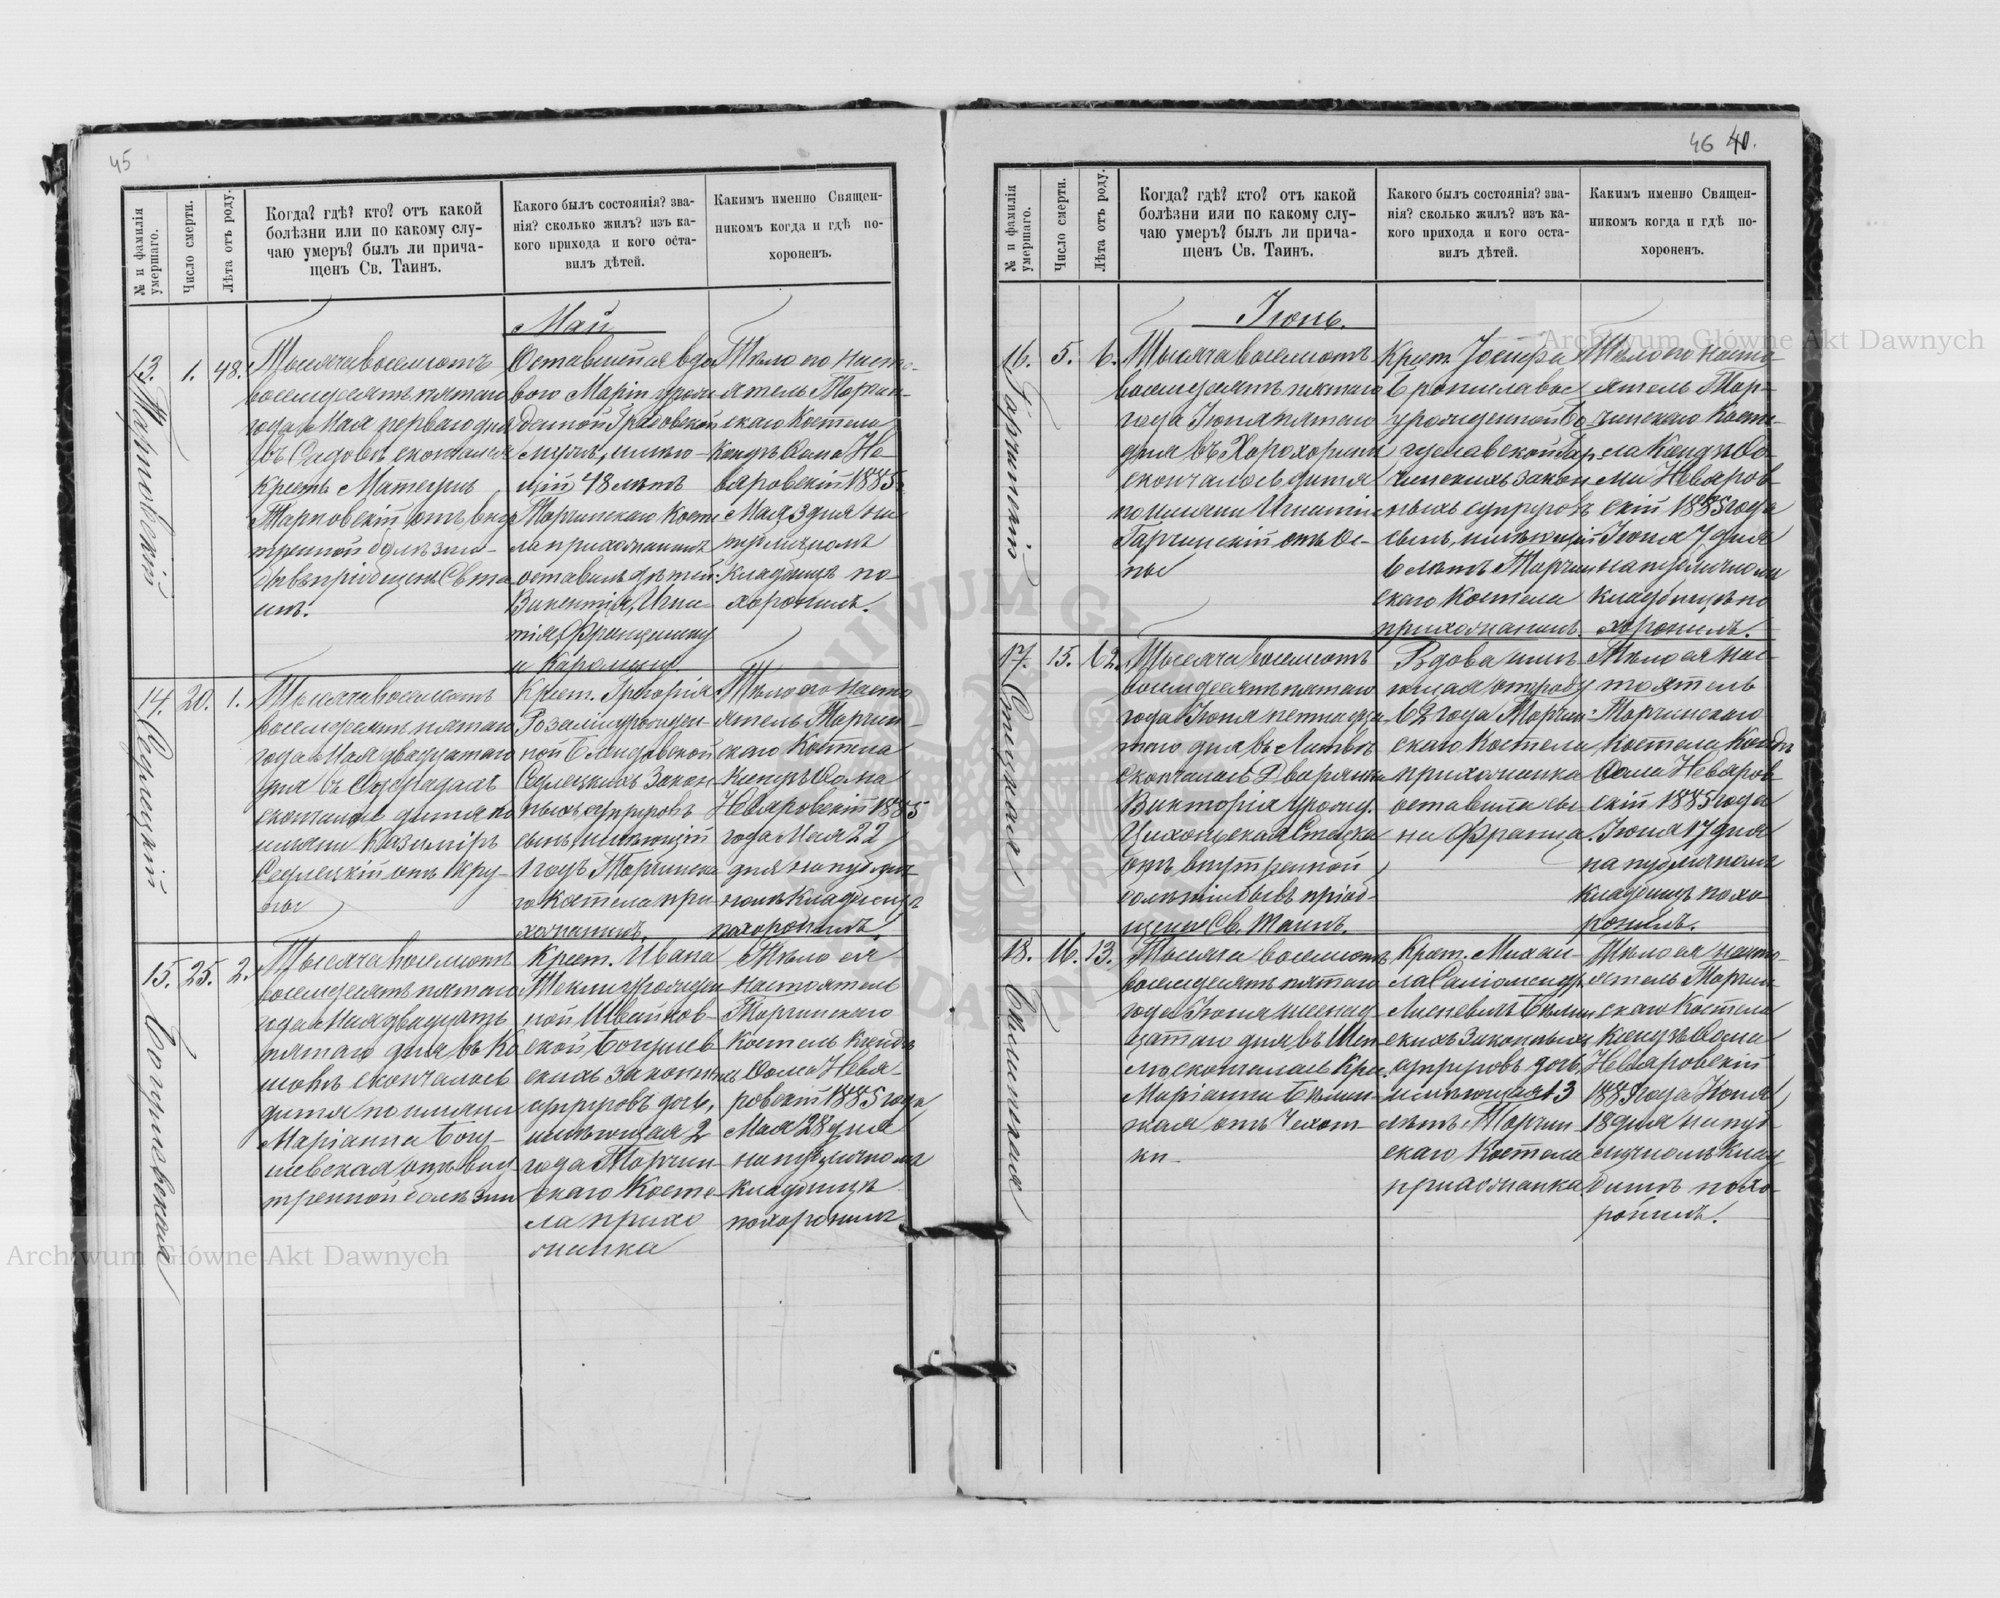 45
№ и фамилія умершаго.
Число смерти.
Лѣта отъ роду.
Когда? гдѣ? кто? отъ какой
болѣзни или по какому слу-
чаю умеръ? былъ ли прича-
щенъ Св. Таинъ.
Какого былъ состоянія? зва-
нія? сколько жилъ? изъ ка-
кого прихода и кого оста-
вилъ дѣтей.
Какимъ именно Священ-
никомъ когда и гдѣ по-
хороненъ.
Май
13.
Тарновскій
1.
48.
Тысяча восемьсотъ
восемдесятъ пятаго
года Мая перваго дня
въ Садовѣ скончался
Крест.
Тарновскій отъ внут
тренной болѣзни
бывъ пріобщенъ Св та
инъ.
Оставшейся вдо
вого Маріи урож
денной
мужъ, имѣю-
щій 48 лѣтъ
Торчинскаго Косте
ла прихожанинъ
оставилъ дѣтей:
Викентія, Игна-
тія, Францишку
и Каролину
Тѣло его насто-
ятель Торчин-
скаго Костела
Ксендзъ Ѳома Не-
вяровскій 1885
Мая 3 дня на
публичномъ
кладбищѣ по-
хоронилъ.
14.
Седлецкій
20.
1.
Тысяча восемьсотъ
восемдесятъ пятаго
года Мая двадцатаго
дня въ
скончалось дитя по
имени Казиміръ
Седлецкій отъ Кру-
пы
Крест. Григорія
Розаліи урожден-
ной
Седлецкихъ Закон
ныхъ супруговъ
сынъ, имѣющій
1 годъ Торчинска
го Костела при
хожанинъ.
Тѣло его насто
ятель Торчин-
скаго Костела
Ксендзъ Ѳома
Невяровскій 1885
года Мая 22
дня на публич
номъ Кладбищѣ
похоронилъ.
15.
25.
2.
Тысяча восемьсотъ
восемдесятъ пятаго
года Мая двадцать
пятаго дня въ Ко
шовѣ скончалось
дитя по имени
Маріанна Богу-
шевская отъ внут
тренной болѣзни
Крест. Ивана
Теклиурожден
ной
ской Богушев
скихъ законныхъ
супруговъ дочь,
имѣющая 2
года Торчин-
скаго Косте-
ла прихо
жанка
Тѣло ея
настоятель
Торчинскаго
Костела Ксендзъ
Ѳома Невя-
ровскій 1885 года
Мая 28 дня
на публичномъ
кладбищѣ
похоронилъ
46 40.
№ и фамилія умершаго.
Число смерти.
Лѣта отъ роду.
Когда? гдѣ? кто? отъ какой
болѣзни или по какому слу-
чаю умеръ? былъ ли прича-
щенъ Св. Таинъ.
Какого былъ состоянія? зва-
нія? сколько жилъ? изъ ка-
кого прихода и кого оста-
вилъ дѣтей.
Какимъ именно Священ-
никомъ когда и гдѣ по-
хороненъ.
Іюнь.
16.
Гарчинскій
5.
6.
Тысяча восемьсотъ
восемдесятъ пятаго
года Іюня пятаго
дня въ Хорохорин
скончалось дитя
по имени Игнатій
Гарчинскій отъ ос-
пы
Крест. Іосифа
Брониславы
урожденной Бо-
Гар-
чинскихъ закон
ныхъ супруговъ
сынъ, имѣющій
6 лѣтъ Торчин
скаго Костела
прихожанинъ
Тѣло его насто-
ятель Тор-
чинскаго Косте-
ла Ксендзъ Ѳо-
ма Невяров-
скій 1885 года
Іюня 7 дня
на публичномъ
кладбищѣ по
хоронилъ.
17.
Стецкая
15.
62.
Тысяча восемьсотъ
восемдесятъ пятаго
года Іюня пятнадца
таго дня въ Литвѣ
скончалась Дворянка
Викторія урожд.
Стецка
отъ внутренной
болѣзни бывъ пріоб-
щена Св. Таинъ.
Вдова имѣ-
ющая отроду
62 года Торчин-
скаго Костела
прихожанка
оставила сы-
на Франца.
Тѣло ея нас-
тоятель
Торчинскаго
Костела Ксендзъ
Ѳома Невяров-
скій 1885 года
Іюня 17 дня
на публичномъ
кладбищѣ похо-
ронилъ.
18.
Бѣлинская
16.
13.
Тысяча восемьсотъ
восемдесятъ пятаго
года Іюня шеснад-
цатаго дня въ Шеп
лѣ скончалась Крес.
Маріанна Бѣлин-
ская отъ Чахот-
ки
Крест. Михаи-
ла
Бѣлин
скихъ законныхъ
супруговъ дочь,
имѣющая 13
лѣтъ Торчин-
скаго Костела
прихожанка
Тѣло ея насто-
ятель Торчин-
скаго Костела
Ксендзъ Ѳома
Невяровскій
1885 года Іюня
18 дня на пуб-
личномъ Клад-
бищѣ похо-
ронилъ.
Archiwum Główne Akt Dawnych
Archiwum Główne Akt Dawnych